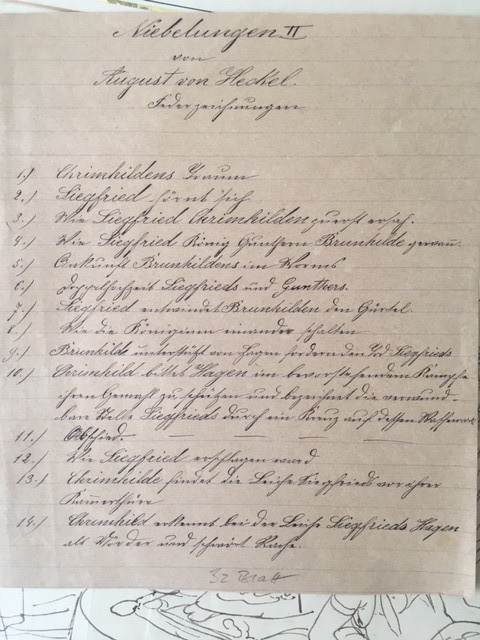 Niebelungen II
von
August von Heckel.
Federzeichnungen
1.) Chrimhildens Traum
2.) Siegfried hörnt sich
3.) Wie Siegfried Chrimhilden zuerst ersah.
4.) Wie Siegfried König Gunthern Brunhilde gewann.
5.) Ankunft Brunhildens in Worms
6.) Doppelhochzeit Siegfrieds und Gunthers.
7.) Siegfried entwindet Brunhilden den Gürtel.
8.) Wie die Königinnen einander schalten
9.) Brunhilde unterstützt von Hagen fordern den Tod Siegfrieds
10.) Chrimhild bittet Hagen im bevorstehendem Kampfe
ihren Gemahl zu schützen und bezeichnet die verwund-
bare Stelle Siegfrieds durch ein Kreuz auf dessen
11.) Abschied.
12.) Wie Siegfried erschlagen ward
13.) Chrimhilde findet die Leiche Siegfrieds vor ihrer
Kammerthüre
14.) Chrimhild erkennt bei der Leiche Siegfrieds Hagen
als Mörder und schwört Rache.
32 Blatt